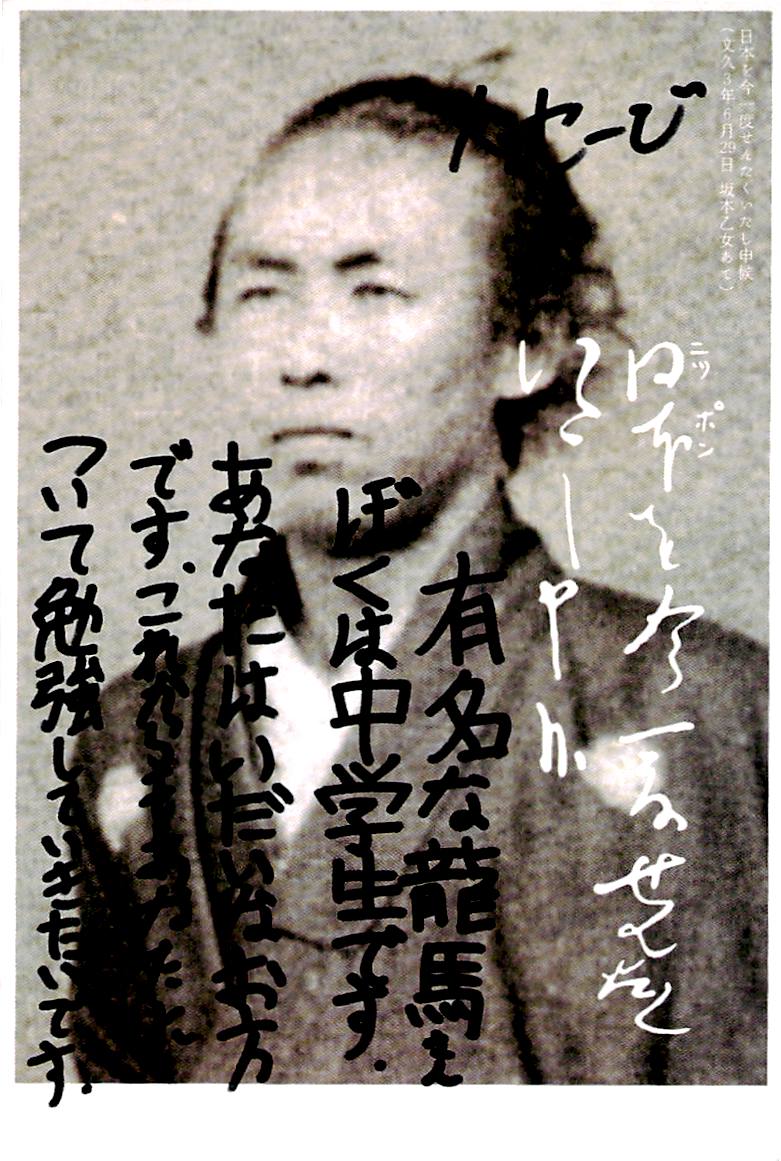 日本を今一度せんたくいたし申候
(文久3年6月29日 坂本乙女あて)
ニッポン
日本を今一度せんたく
いたし申候
有名な龍馬え
ぼくは中学生です.
あなたはいだいなお方
です、これからもあなたに
ついて勉強していきたいです.